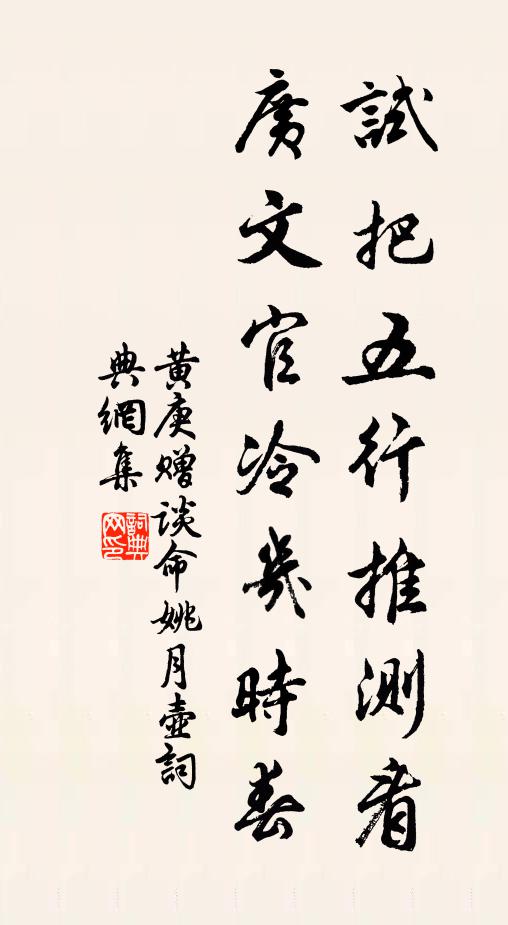 試把五行推測看
廣文官冷幾時春
黄庚贈談命姚月壺詞
典網集
詞典網印